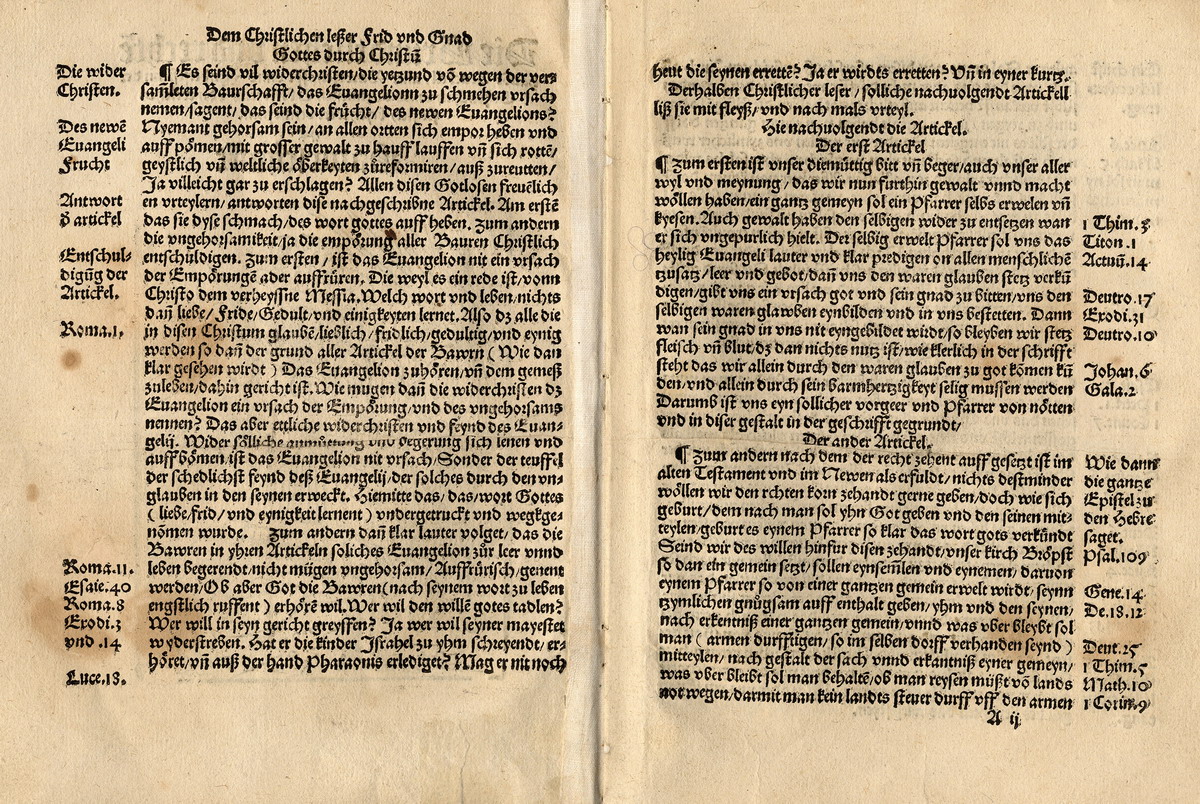 Dem Christlichen leßer Frid vnd Gnad
Gottes durch Christũ
Die wider
Christen.
Des newẽ
Euangeli
Frucht
Antwort
d̃ artickel
Entschul-
digũg der
Artickel.
Roma.1.
Roma.11.
Esaie.40
Roma.8
Exodi.3
vnd .14
Luce.18.
¶ Es seind vil widerchristen/die yetzund võ wegen der ver-
sam̃leten Baurschafft/das Euangelionn zu schmehen vrsach
nemen/sagent/das seind die frücht/des newen Euangelions?
Nyemant gehorsam sein/an allen ortten sich empor heben vnd
auff põmen/mit grosser gewalt zu hauff lauffen vñ sich rottẽ/
geystlich vñ weltliche öberkeyten zůreformiren/auß zureutten/
Ja villeicht gar zu erschlagen? Allen disen Gotlosen freuẽlich
en vrteylern/antworten dise nachgeschribne Artickel. Am erstẽ
das sie dyse schmach/des wort gottes auff heben. Zum andern
die vngehorsamikeit/ja die empörung aller Bauren Christlich
entschuldigen. Zum ersten/ist das Euangelion nit ein vrsach
der Empörungẽ ader auffrüren. Die weyl es ein rede ist/vonn
Christo dem verheyssne Messia. Welch wort vnd leben/nichts
dañ liebe/Fride/Gedult/vnd einigkeyten lernet. Also dz alle die
in disen Christum glaubẽ/lieblich/fridlich/gedultig/vnd eynig
werden so dañ der grund aller Artickel der Bawrn (Wie dan
klar gesehen wirdt) Das Euangelion zuhören/vñ dem gemeß
zulebẽn/dahin gericht ist. Wie mugen dañ die widerchristen dz
Euangelion ein vrsach der Empörung/vnd des vngehorsams
nennen? Das aber ettliche widerchristen vnd feynd des Euan-
gelij. Wider sölliche anmüttung vnd begerung sich lenen vnd
auff bömen/ist das Euangelion nit vrsach/Sonder der teuffel
der schedlichst feynd deß Euangelij/der solches durch den vn-
glauben in den seynen erweckt. Hiemitte das/das wort Gottes
(liebe/frid/vnd eynigkeit lernent) vndergetruckt vnd wegkge-
nõmen wurde. Zum andern dañ klar lauter volget/das die
Bawren in yhren Artickeln soliches Euangelion zůr leer vnnd
leben begerendt/nicht mügen vngehorsam/Auffrürisch/genent
werden/Ob aber Got die Bawren(nach seynem wort zu leben
engstlich ruffent) erhörẽ wil. Wer wil den willẽ gotes tadlen?
Wer will in seyn gericht greyffen? Ja wer wil seyner mayestet
wyderstreben. Hat er die kinder Israhel zu yhm schreyendt/er-
höret/vñ auß der hand Pharaonis erlediget? Mag er nit noch
heut die seynen erretẽ? Ja er wirdts erretten? Vñ in eyner kurtz.
Derhalben Christlicher leser/solliche nachuolgendt Artickell
liß sie mit fleyß/vnd nach mals vrteyl.
Hie nachuolgendt die Artickel.
Der erst Artickel
¶ Zum ersten ist vnser diemüttig bitt vñ beger/auch vnser aller
wyl vnd meynung/das wir nun furthin gewalt vnnd macht
wöllen haben/ein gantz gemeyn sol ein Pfarrer selbs erwelen vñ
kyesen. Auch gewalt haben den selbigen wider zu entsetzen wan
er sich vngepurlich hielt. Der selbig erwelt Pfarrer sol vns das
heylig Euangeli lauter vnd klar predigen on allen menschlichẽ
tzusatz/leer vnd gebot/dañ vns den waren glauben stetz verkũ
digen/gibt vns ein vrsach got vnd sein gnad zu bitten/vns den
selbigen waren glawben eynbilden vnd in vns bestetten. Dann
wan sein gnad in vns nit eyngebildet wirdt/so bleyben wir stetz
fleisch vñ blut/dz dan nichts nutz ist/wie klerlich in der schrifft
steht das wir allein durch den waren glauben zu got kömen kũ
den/vnd allein durch sein barmhertzigkeyt selig mussen werden
Darumb ist vns eyn sollicher vorgeer vnd Pfarrer von nötten
vnd in diser gestalt in der geschrifft gegrundt/
Der ander Artickel.
¶ Zum andern nach dem der recht zehent auff gesetzt ist im
alten Testament vnd im Newen als erfuldt/nichts destminder
wöllen wir den rchten korn zehandt gerne geben/doch wie sich
geburt/dem nach man sol yhn Got geben vnd den seinen mit-
teylen/geburt es eynem Pfarrer so klar das wort gots verkündt
Seind wir des willen hinfur disen zehandt/vnser kirch Bröpst
so dan ein gemein setzt/sollen eynsem̃len vnd eynemen/daruon
eynem Pfarrer so von einer gantzen gemein erwelt wirdt/seynn
tzymlichen gnůgsam auff enthalt geben/yhm vnd den seynen/
nach erkentniß einer gantzen gemein/vnnd was vber bleybt sol
man (armen durfftigen/so im selben dorff verhanden seynd)
mitteylen/nach gestalt der sach vnnd erkantniß eyner gemeyn/
was vber bleibt sol man behaltẽ/ob man reysen müßt võ lands
not wegen/darmit man kein landts steuer durff vff den armen
A ij
1 Thim.3
Titon.1
Actuũ.14
Deutro.17
Exodi.31
Deutro.10
Johan.6
Gala.2
Wie dann
die gantze
Epistel zu
den Hebre
saget.
Psal.109
Gene.14
De.18.12
Deut.25
1 Thim.5
Math.10
1 Corin.9